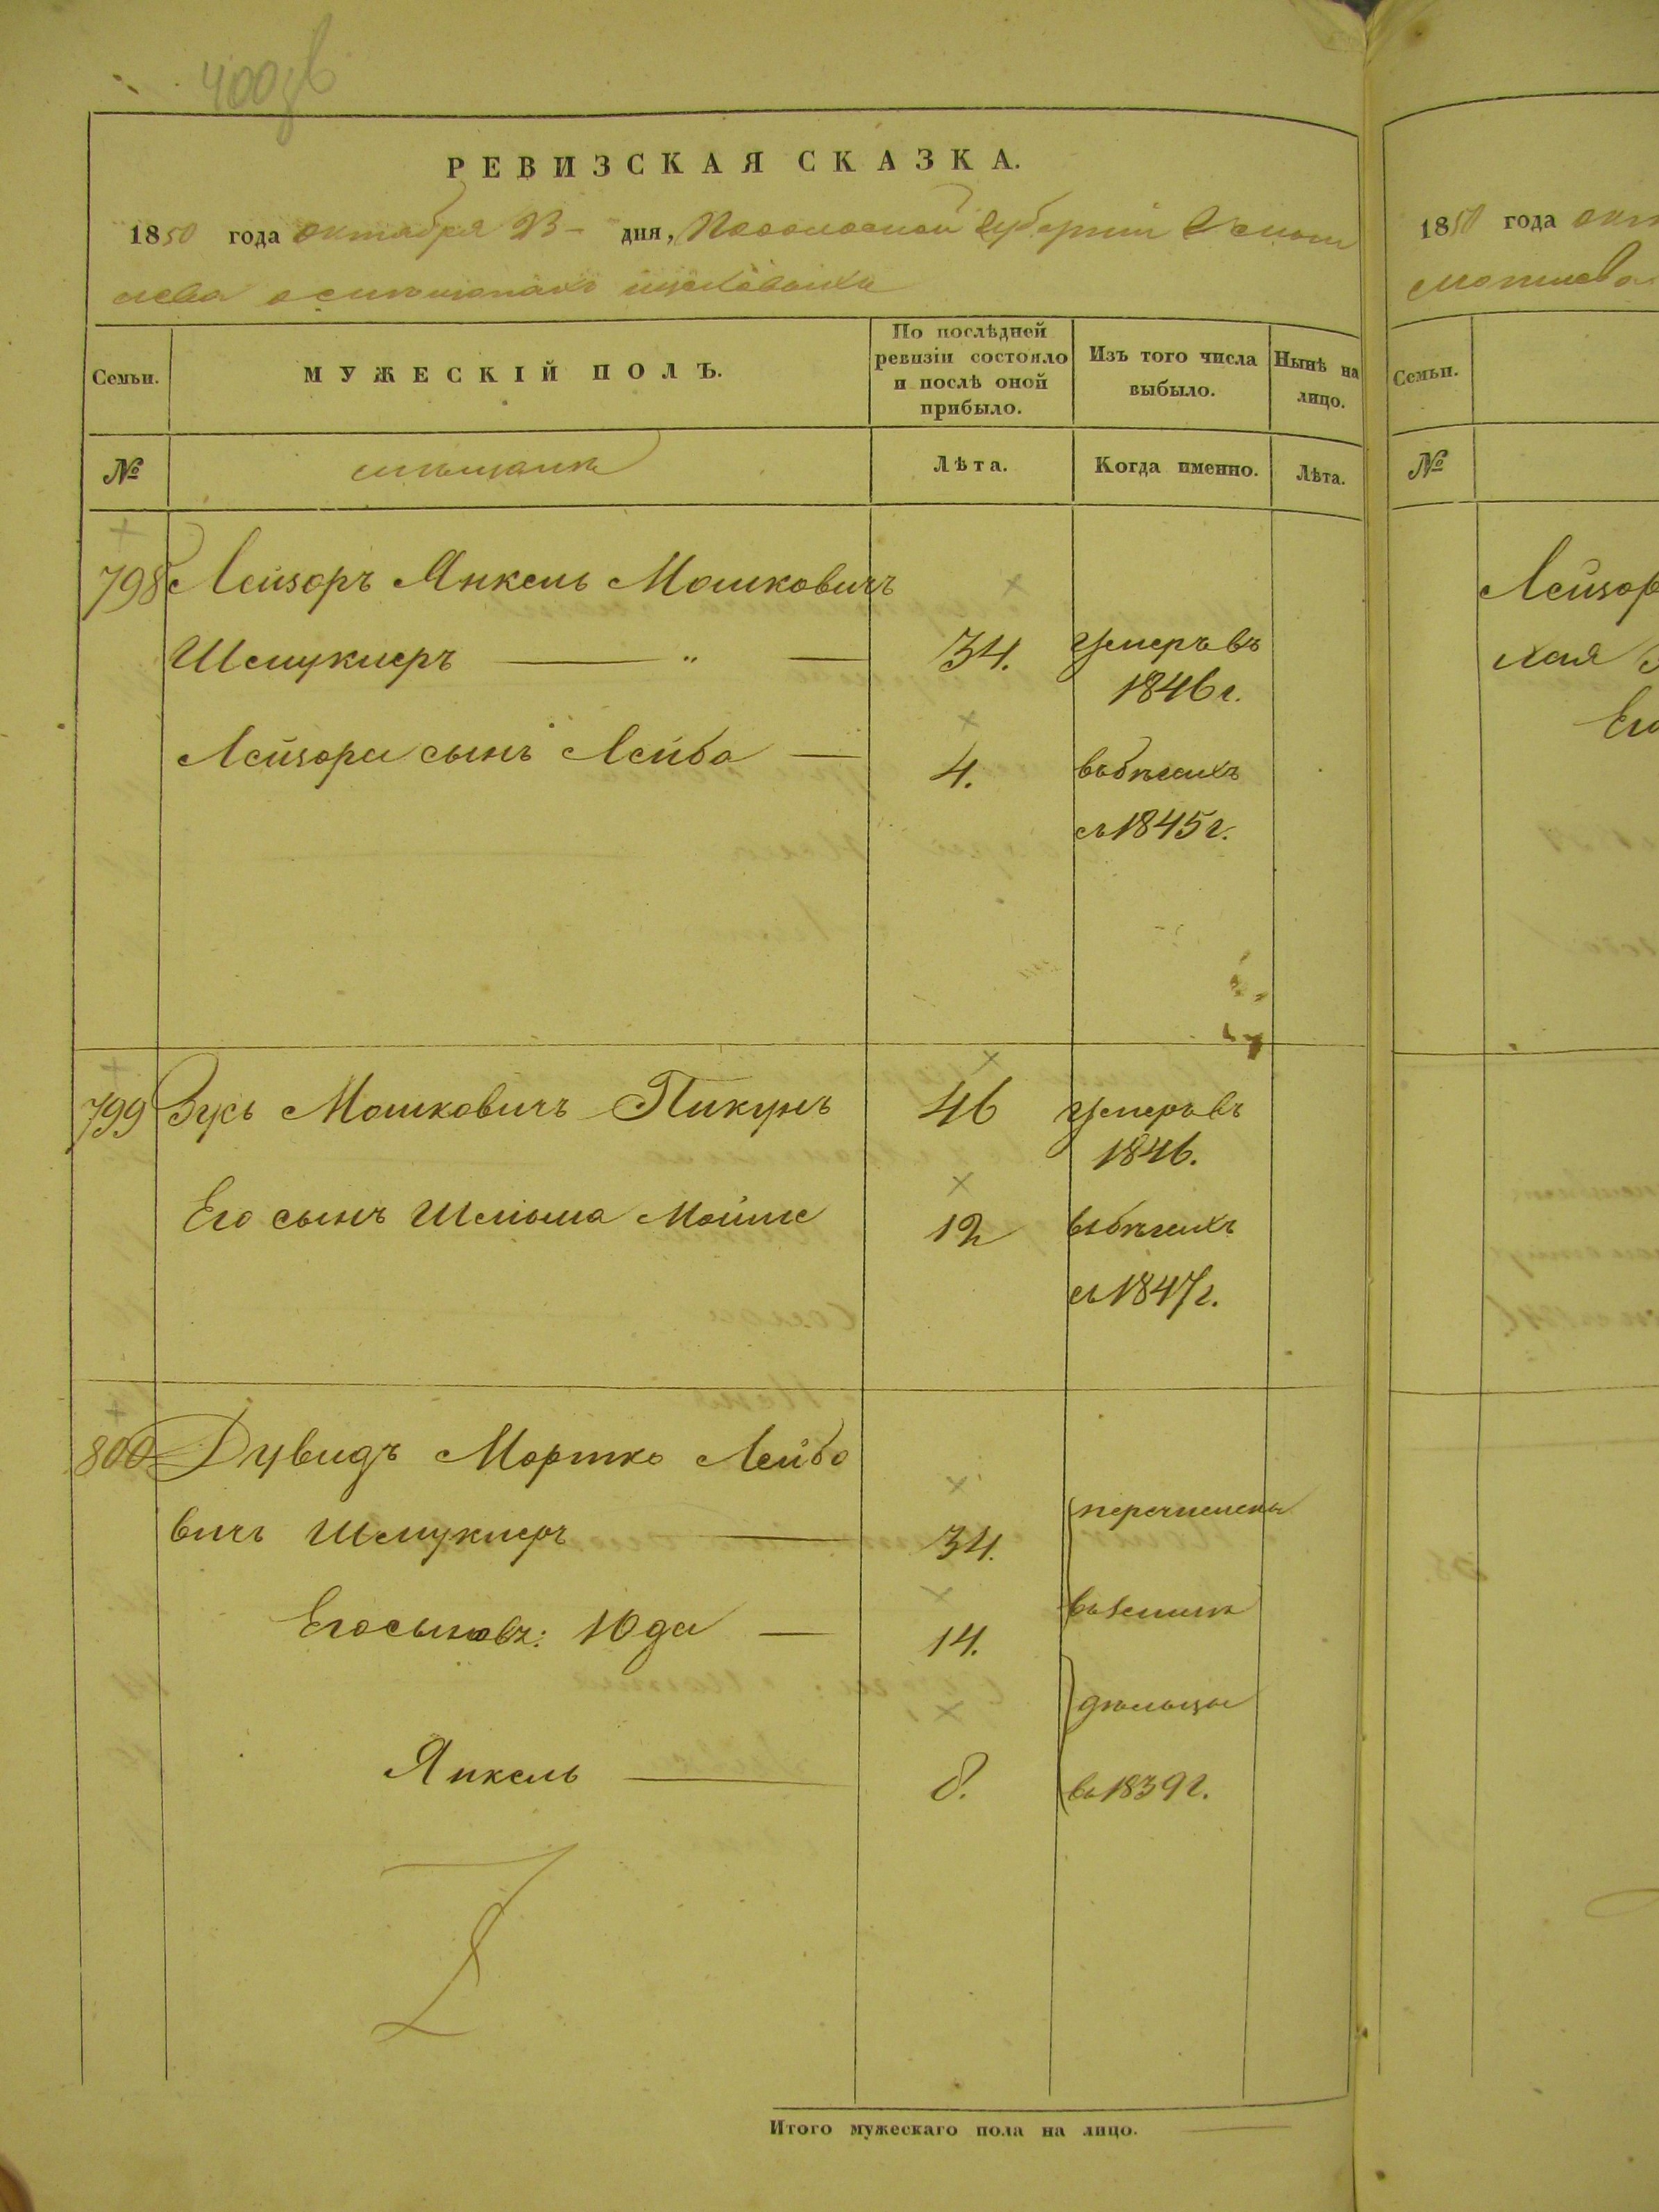 400об
РЕВИЗСКАЯ СКАЗКА.
1850 года октября 23 дня, Подольской Губерніи
Семьи.
МУЖЕСКІЙ ПОЛЪ.
По послѣдней ревизіи состояло и послѣ оной прибыло.
Изъ того числа выбыло.
Нынѣ на лицо.
№
мѣщане
Лѣта.
Когда именно.
Лѣта.
798 Лейзоръ Янкель Мошковичъ
Шмукнеръ — „ — 34. умеръ въ
1846 г.
Лейзора сынъ Лейба — 4. въ бѣгахъ
съ 1845 г.
799 Зусь Мошковичъ Пикунъ 46 умеръ въ
1846.
Его сынъ Шлема Мойше 12 въ бѣгахъ
съ 1847 г.
800 Дувидъ Мортко Лейбо
вичъ Шмукнеръ — 34. перечислены
Его сыновъя: Юда — 14. въ земле
Янкель — 8. дѣльцы
въ 1839 г.
Итого мужескаго пола на лицо. —
1850 года
Семьи.
№
Лейзор